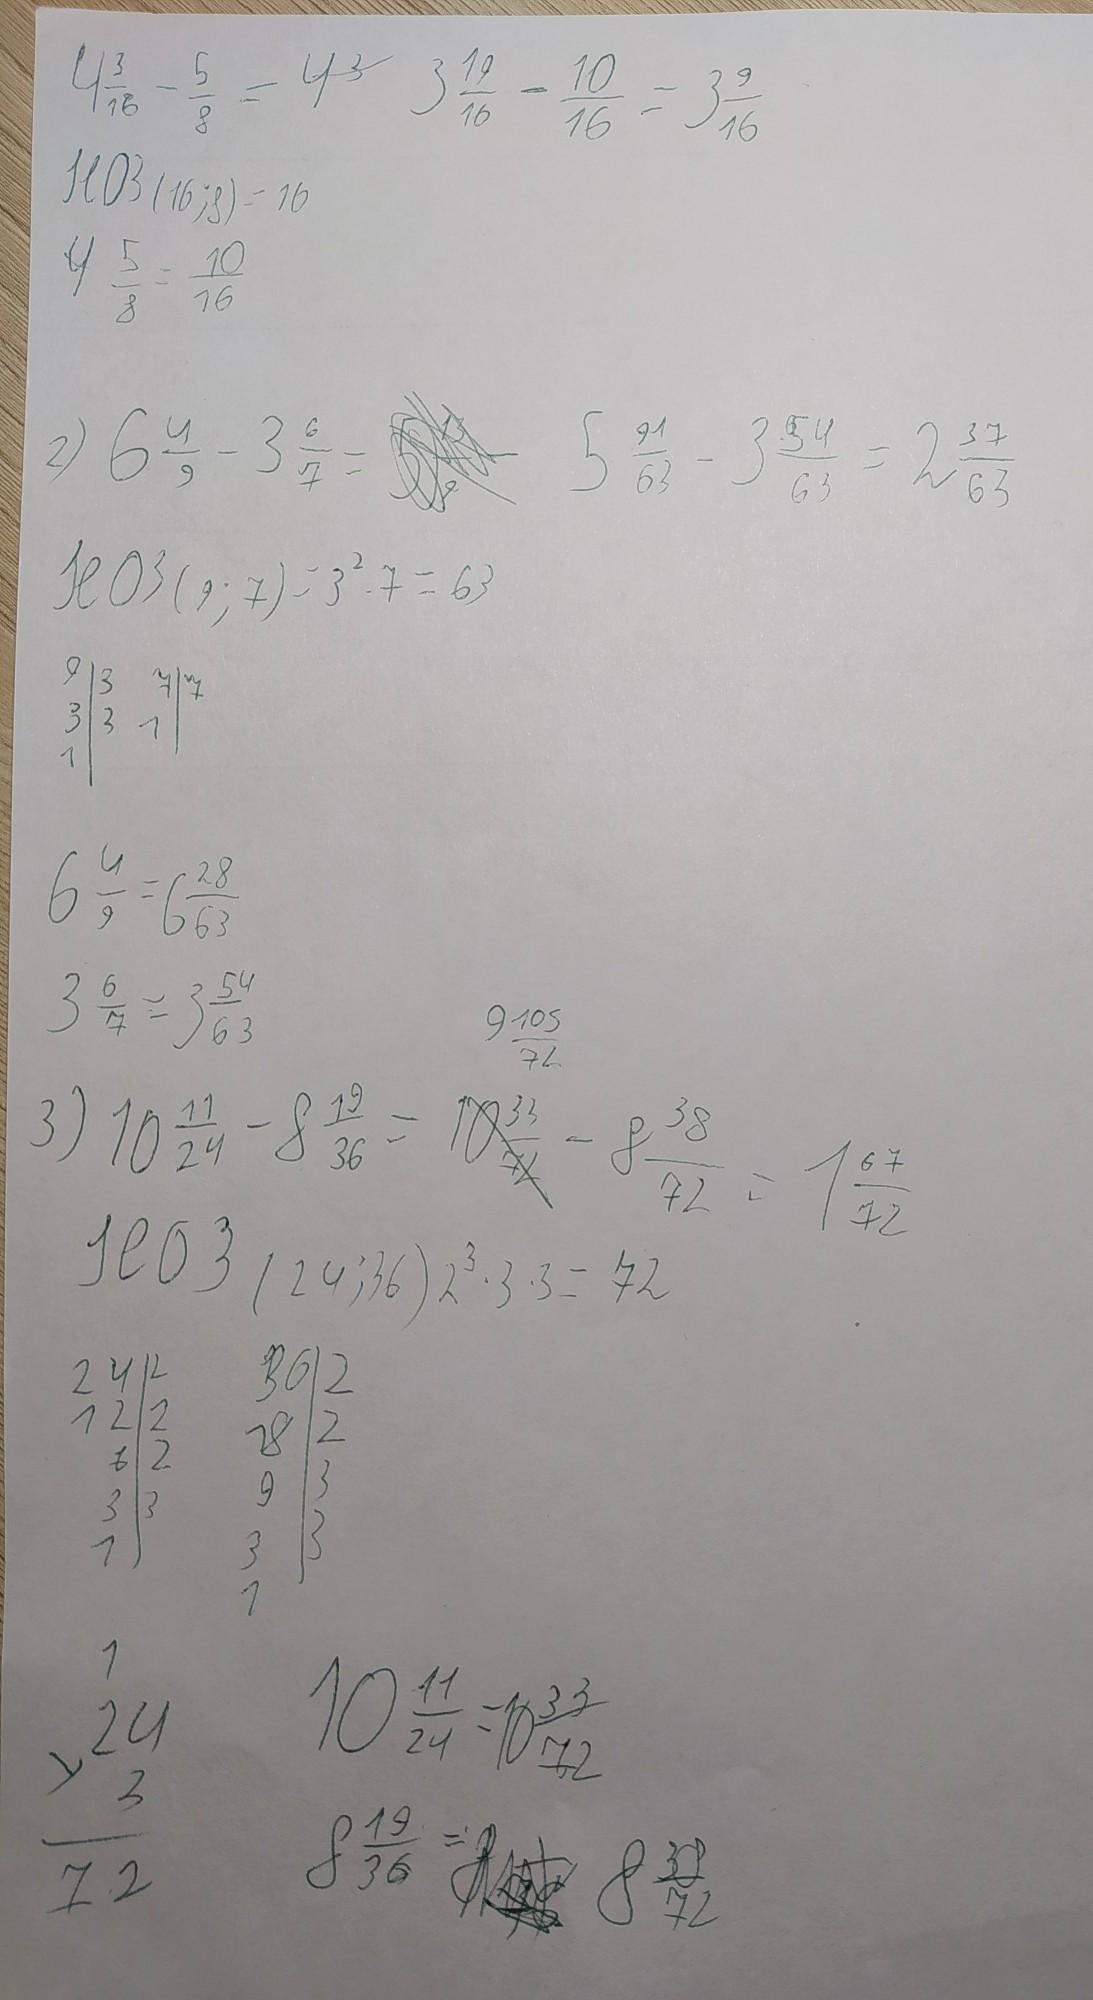 4 3/16 - 5/8 = 4 3 3 19/16 - 10/16 = 3 9/16
НОЗ (16;8) = 16
4 5/8 = 10/16
2) 6 4/9 - 3 6/7 = 5 91/63 - 3 54/63 = 2 37/63
НОЗ (9; 7) = 3² · 7 = 63
9|3 7|7
3|3 1|
1|
6 4/9 = 6 28/63
3 6/7 = 3 54/63
9 105/72
3) 10 11/24 - 8 19/36 = 10 33/72 - 8 38/72 = 1 67/72
НОЗ (24;36) 2³ · 3 · 3 = 72
24|2 36|2
12|2 18|2
6|2 9|3
3|3 3|3
1| 1
1
24 10 11/24 = 10 33/72
× 3
72 8 19/36 = 8 38/72